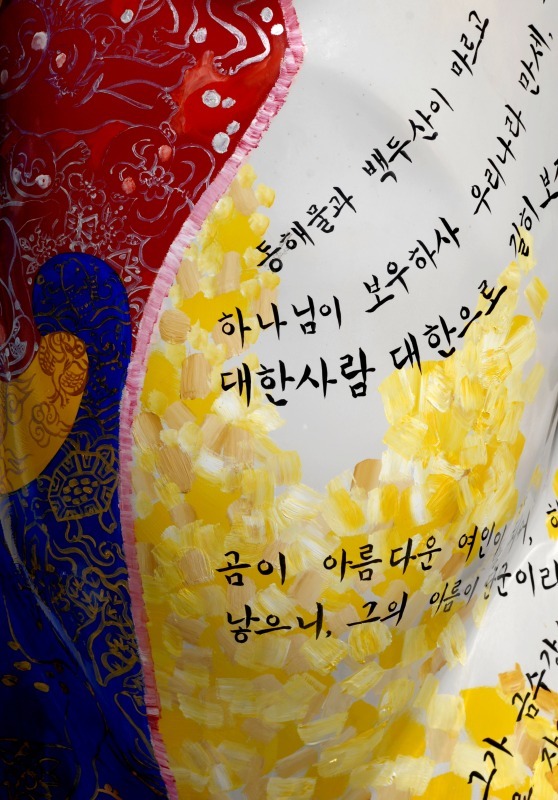 동해물과 백두산이 마르고
하나님이 보우하사 우리나라 만세,
대한사람 대한으로 길히 보
곰이 아름다운 여인이
낳으니, 그의 아름이 단군이라
그가 금수강